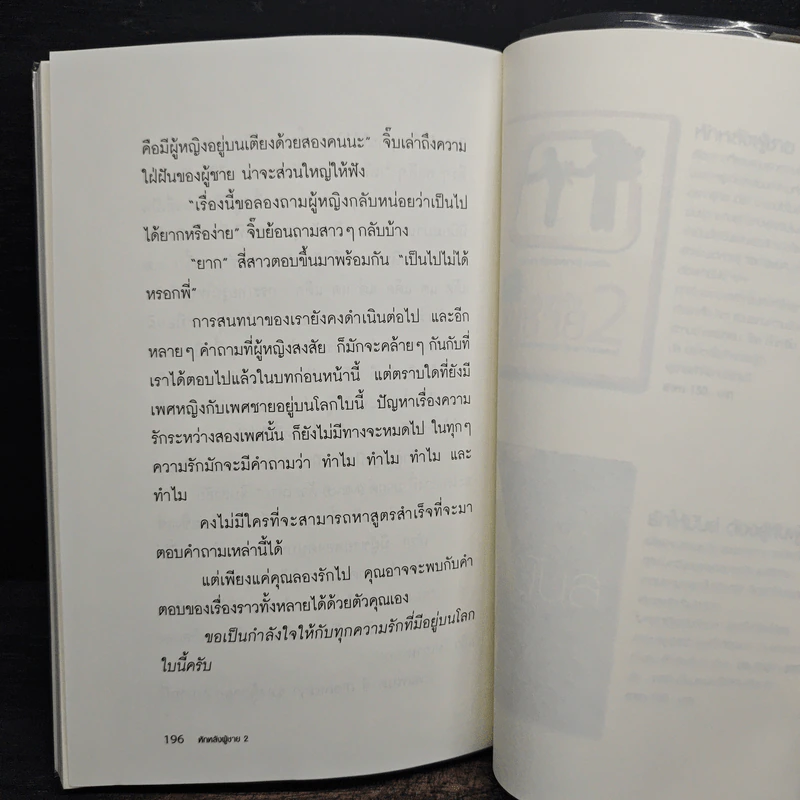 คือมีผู้หญิงอยู่บนเตียงด้วยสองคนนะ” จิ๊บเล่าถึงความ
ใฝ่ฝันของผู้ชาย น่าจะส่วนใหญ่ให้ฟัง
“เรื่องนี้ขอลองถามผู้หญิงกลับหน่อยว่าเป็นไป
ได้ยากหรือง่าย” จิ๊บย้อนถามสาวๆ กลับบ้าง
“ยาก” สี่สาวตอบขึ้นมาพร้อมกัน “เป็นไปไม่ได้
หรอกพี่”
การสนทนาของเรายังคงดำเนินต่อไป และอีก
หลายๆ คำถามที่ผู้หญิงสงสัย ก็มักจะคล้ายๆ กันกับที่
เราได้ตอบไปแล้วในบทก่อนหน้านี้ แต่ตราบใดที่ยังมี
เพศหญิงกับเพศชายอยู่บนโลกใบนี้ ปัญหาเรื่องความ
รักระหว่างสองเพศนั้น ก็ยังไม่มีทางจะหมดไป ในทุกๆ
ความรักมักจะมีคำถามว่า ทำไม ทำไม ทำไม และ
ทำไม
คงไม่มีใครที่จะสามารถหาสูตรสำเร็จที่จะมา
ตอบคำถามเหล่านี้ได้
แต่เพียงแค่คุณลองรักไป คุณอาจจะพบกับคำ
ตอบของเรื่องราวทั้งหลายได้ด้วยตัวคุณเอง
ขอเป็นกำลังใจให้กับทุกความรักที่มีอยู่บนโลก
ใบนี้ครับ
196 ศึกหลังผู้ชาย 2